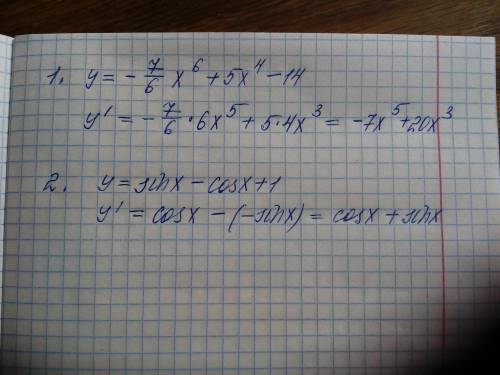 1. y = - 7/6 x^6 + 5x^4 - 14
y' = - 7/6 · 6x^5 + 5·4x^3 = -7x^5 + 20x^3
2. y = sinx - cosx + 1
y' = cosx - (-sinx) = cosx + sinx